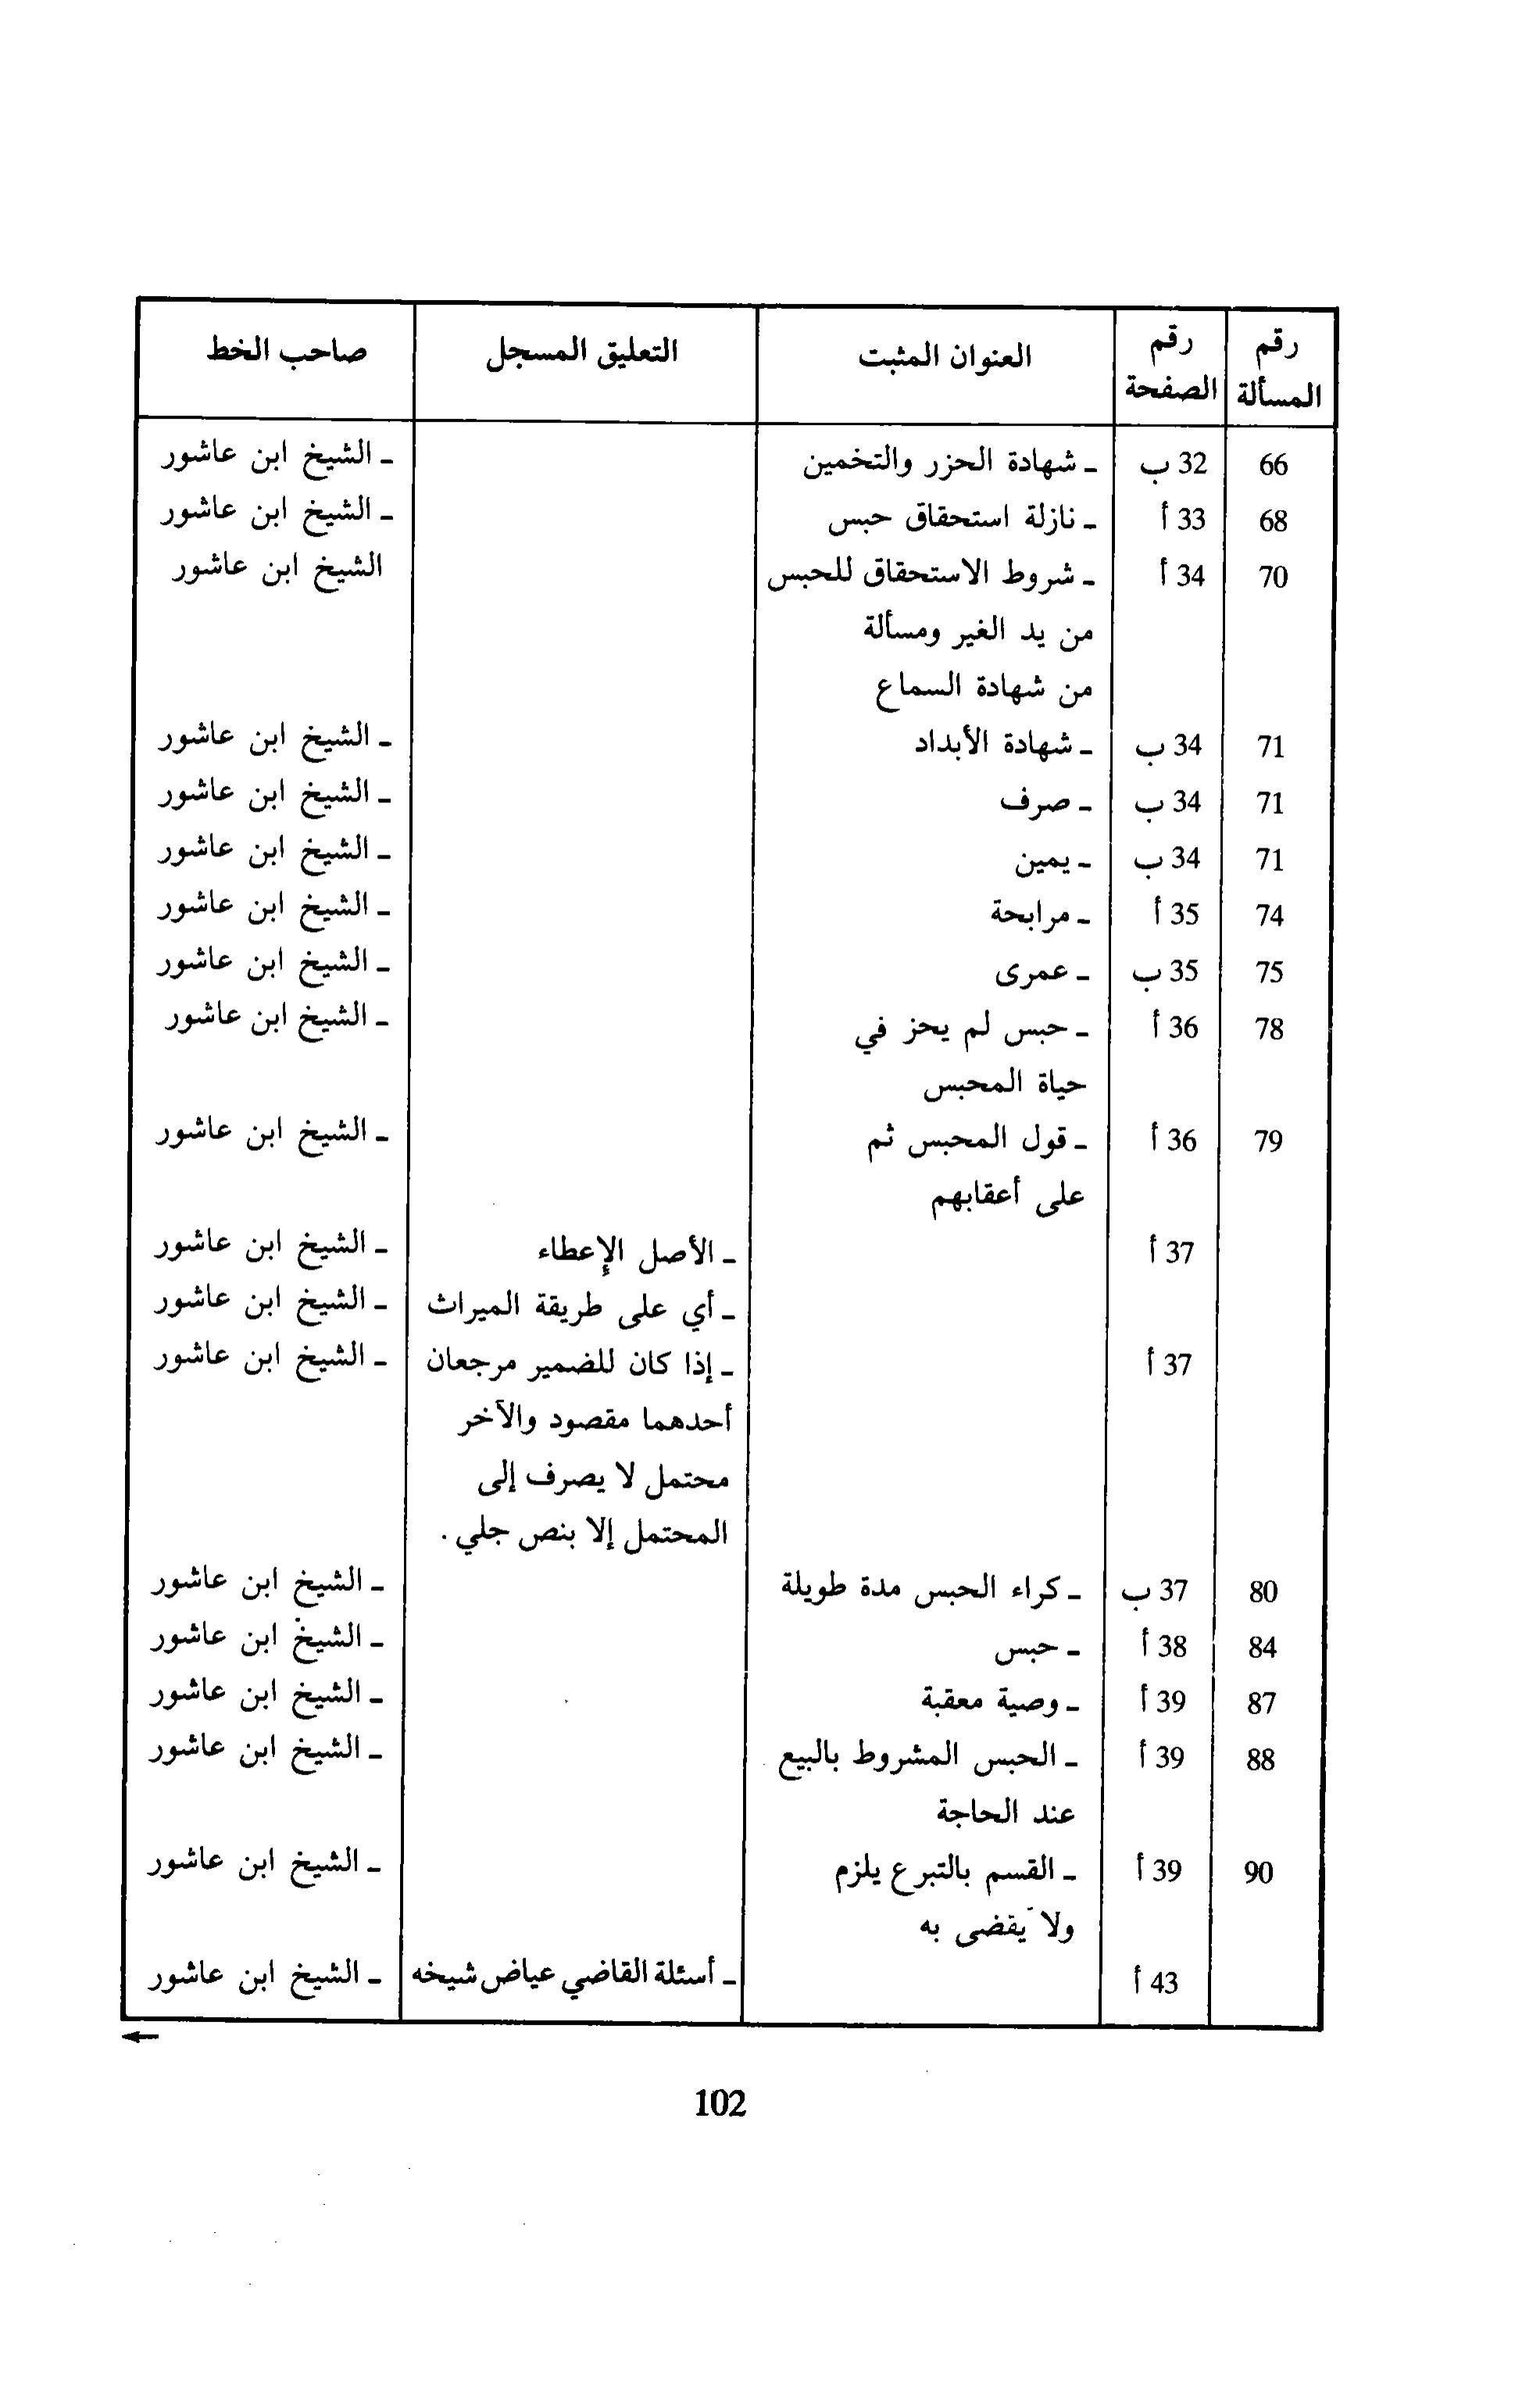 رقم المسألة | رقم الصفحة | العنوان المثبت | التعليق المسجل | صاحب الخط
66 | 32 ب | ـ شهادة الحزر والتخمين | | ـ الشيخ ابن عاشور
68 | 33 أ | ـ نازلة استحقاق حبس | | ـ الشيخ ابن عاشور
70 | 34 أ | ـ شروط الاستحقاق للحبس | | الشيخ ابن عاشور
من يد الغير ومسألة
من شهادة السماع
71 | 34 ب | ـ شهادة الأبداد | | ـ الشيخ ابن عاشور
71 | 34 ب | ـ صرف | | ـ الشيخ ابن عاشور
71 | 34 ب | ـ يمين | | ـ الشيخ ابن عاشور
74 | 35 أ | ـ مرابحة | | ـ الشيخ ابن عاشور
75 | 35 ب | ـ عمرى | | ـ الشيخ ابن عاشور
78 | 36 أ | ـ حبس لم يحز في | | ـ الشيخ ابن عاشور
حياة المحبس
79 | 36 أ | ـ قول المحبس ثم | | ـ الشيخ ابن عاشور
على أعقابهم
| 37 أ | | ـ الأصل الإعطاء | ـ الشيخ ابن عاشور
| | | ـ أي على طريقة الميراث | ـ الشيخ ابن عاشور
| 37 أ | | ـ إذا كان للضمير مرجعان | ـ الشيخ ابن عاشور
أحدهما مقصود والآخر
محتمل لا يصرف إلى
المحتمل إلا بنص جلي .
80 | 37 ب | ـ كراء الحبس مدة طويلة | | ـ الشيخ ابن عاشور
84 | 38 أ | ـ حبس | | ـ الشيخ ابن عاشور
87 | 39 أ | ـ وصية معقبة | | ـ الشيخ ابن عاشور
88 | 39 أ | ـ الحبس المشروط بالبيع | | ـ الشيخ ابن عاشور
عند الحاجة
90 | 39 أ | ـ القسم بالتبرع يلزم | | ـ الشيخ ابن عاشور
ولا يقضى به
| 43 أ | | ـ أسئلة القاضي عياض شيخه | ـ الشيخ ابن عاشور
102